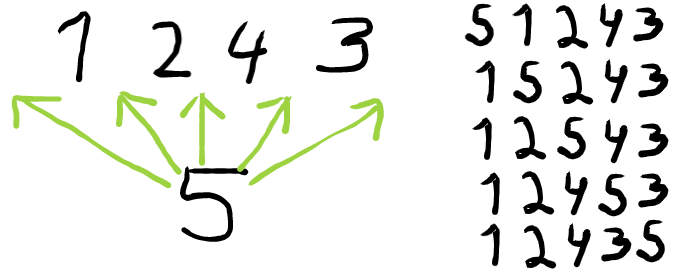 1 2 4 3
5
5 1 2 4 3
1 5 2 4 3
1 2 5 4 3
1 2 4 5 3
1 2 4 3 5